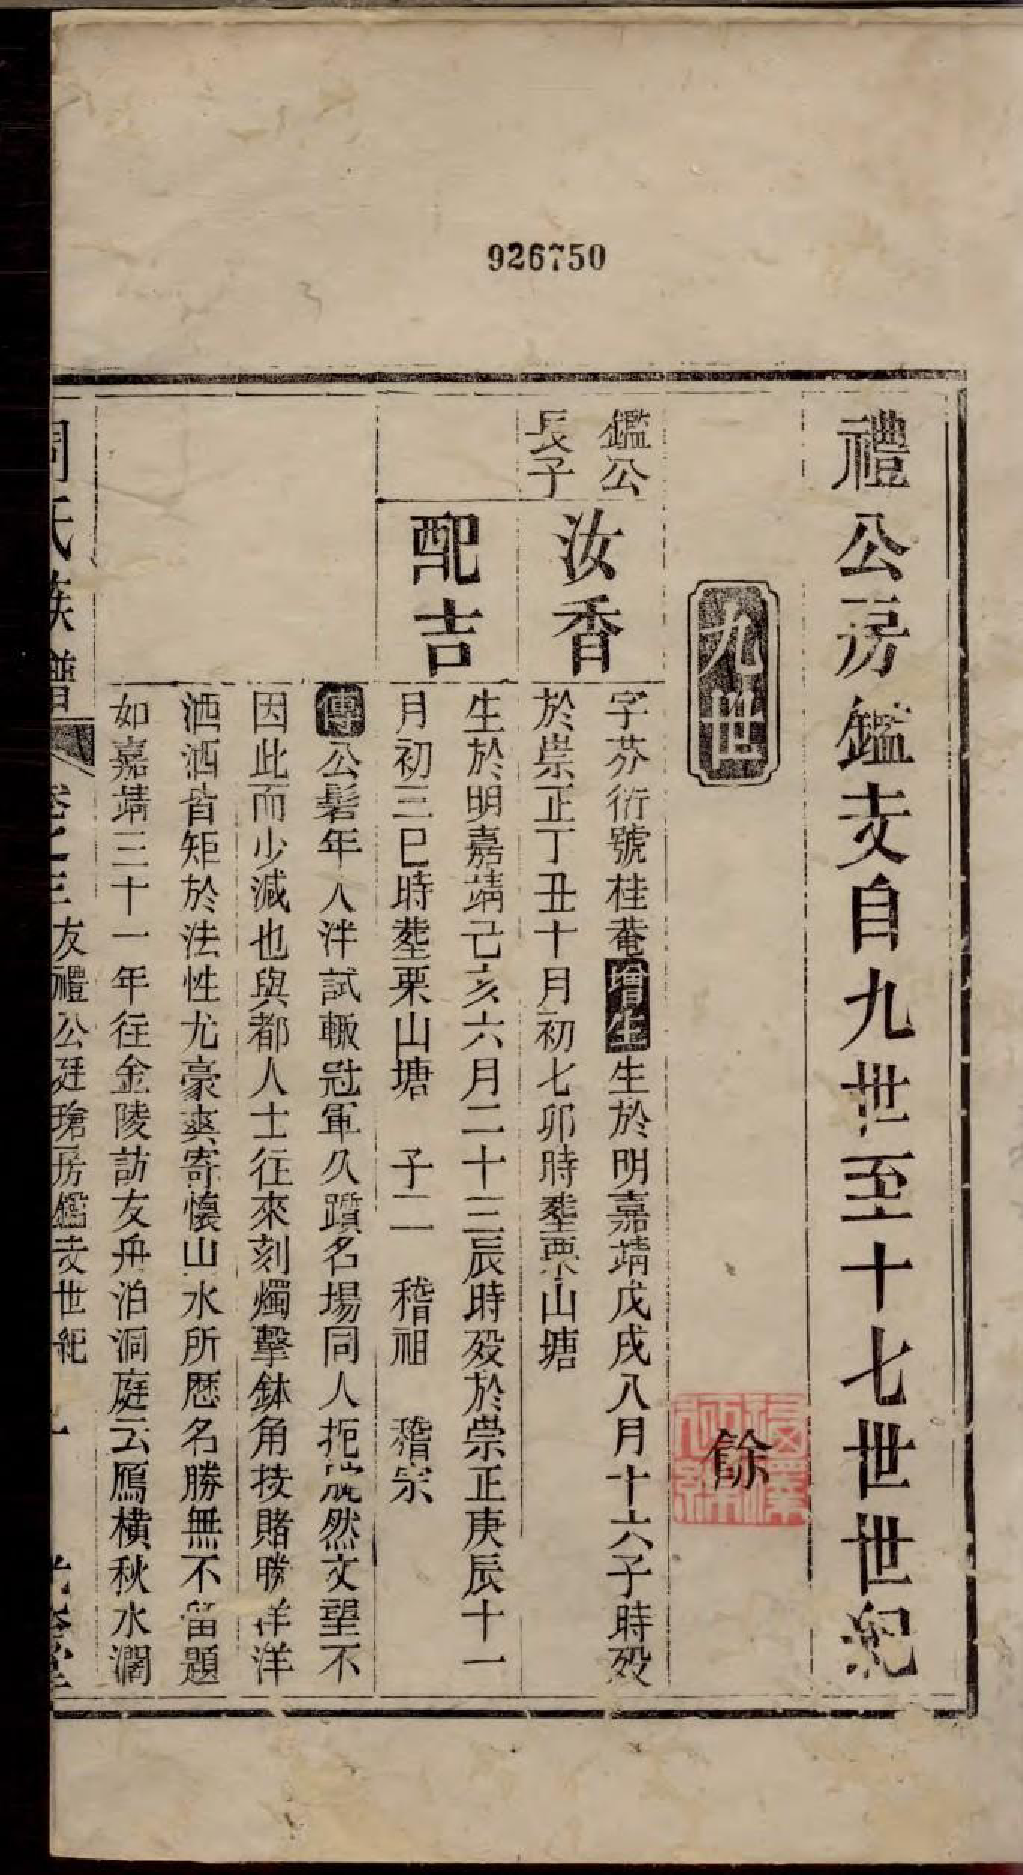 926750
禮公房鑑支自九世至十七世世紀
九世
餘
鑑公
長子
汝香
字芥衍號桂菴增生生於明嘉靖戊戌八月十六子時歿
於崇正丁丑十月初七卯時塟栗山塘
配吉
生於明嘉靖己亥六月二十三辰時歿於崇正庚辰十一
月初三巳時塟栗山塘 子二 稽祖 稽宗
傳公髫年入泮試輙冠軍久躓名場同人扼腕然文望不
因此而少減也與都人士往來刻燭擊鉢角技賭勝洋洋
洒洒皆矩於法性尤豪爽寄懷山水所歷名勝無不留題
如嘉靖三十一年往金陵訪友舟泊洞庭云鴈橫秋水濶
周氏族譜 卷之三 友禮公廷瑲房鑑支世紀 一